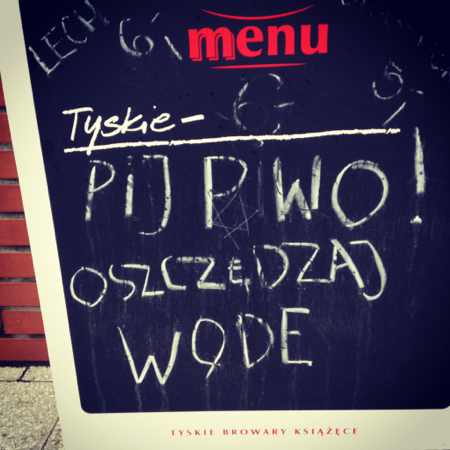 LECH 6,
menu
6,- 5,
Tyskie -
PIJ PIWO!
OSZCZĘDZAJ
WODĘ
TYSKIE BROWARY KSIĄŻĘCE